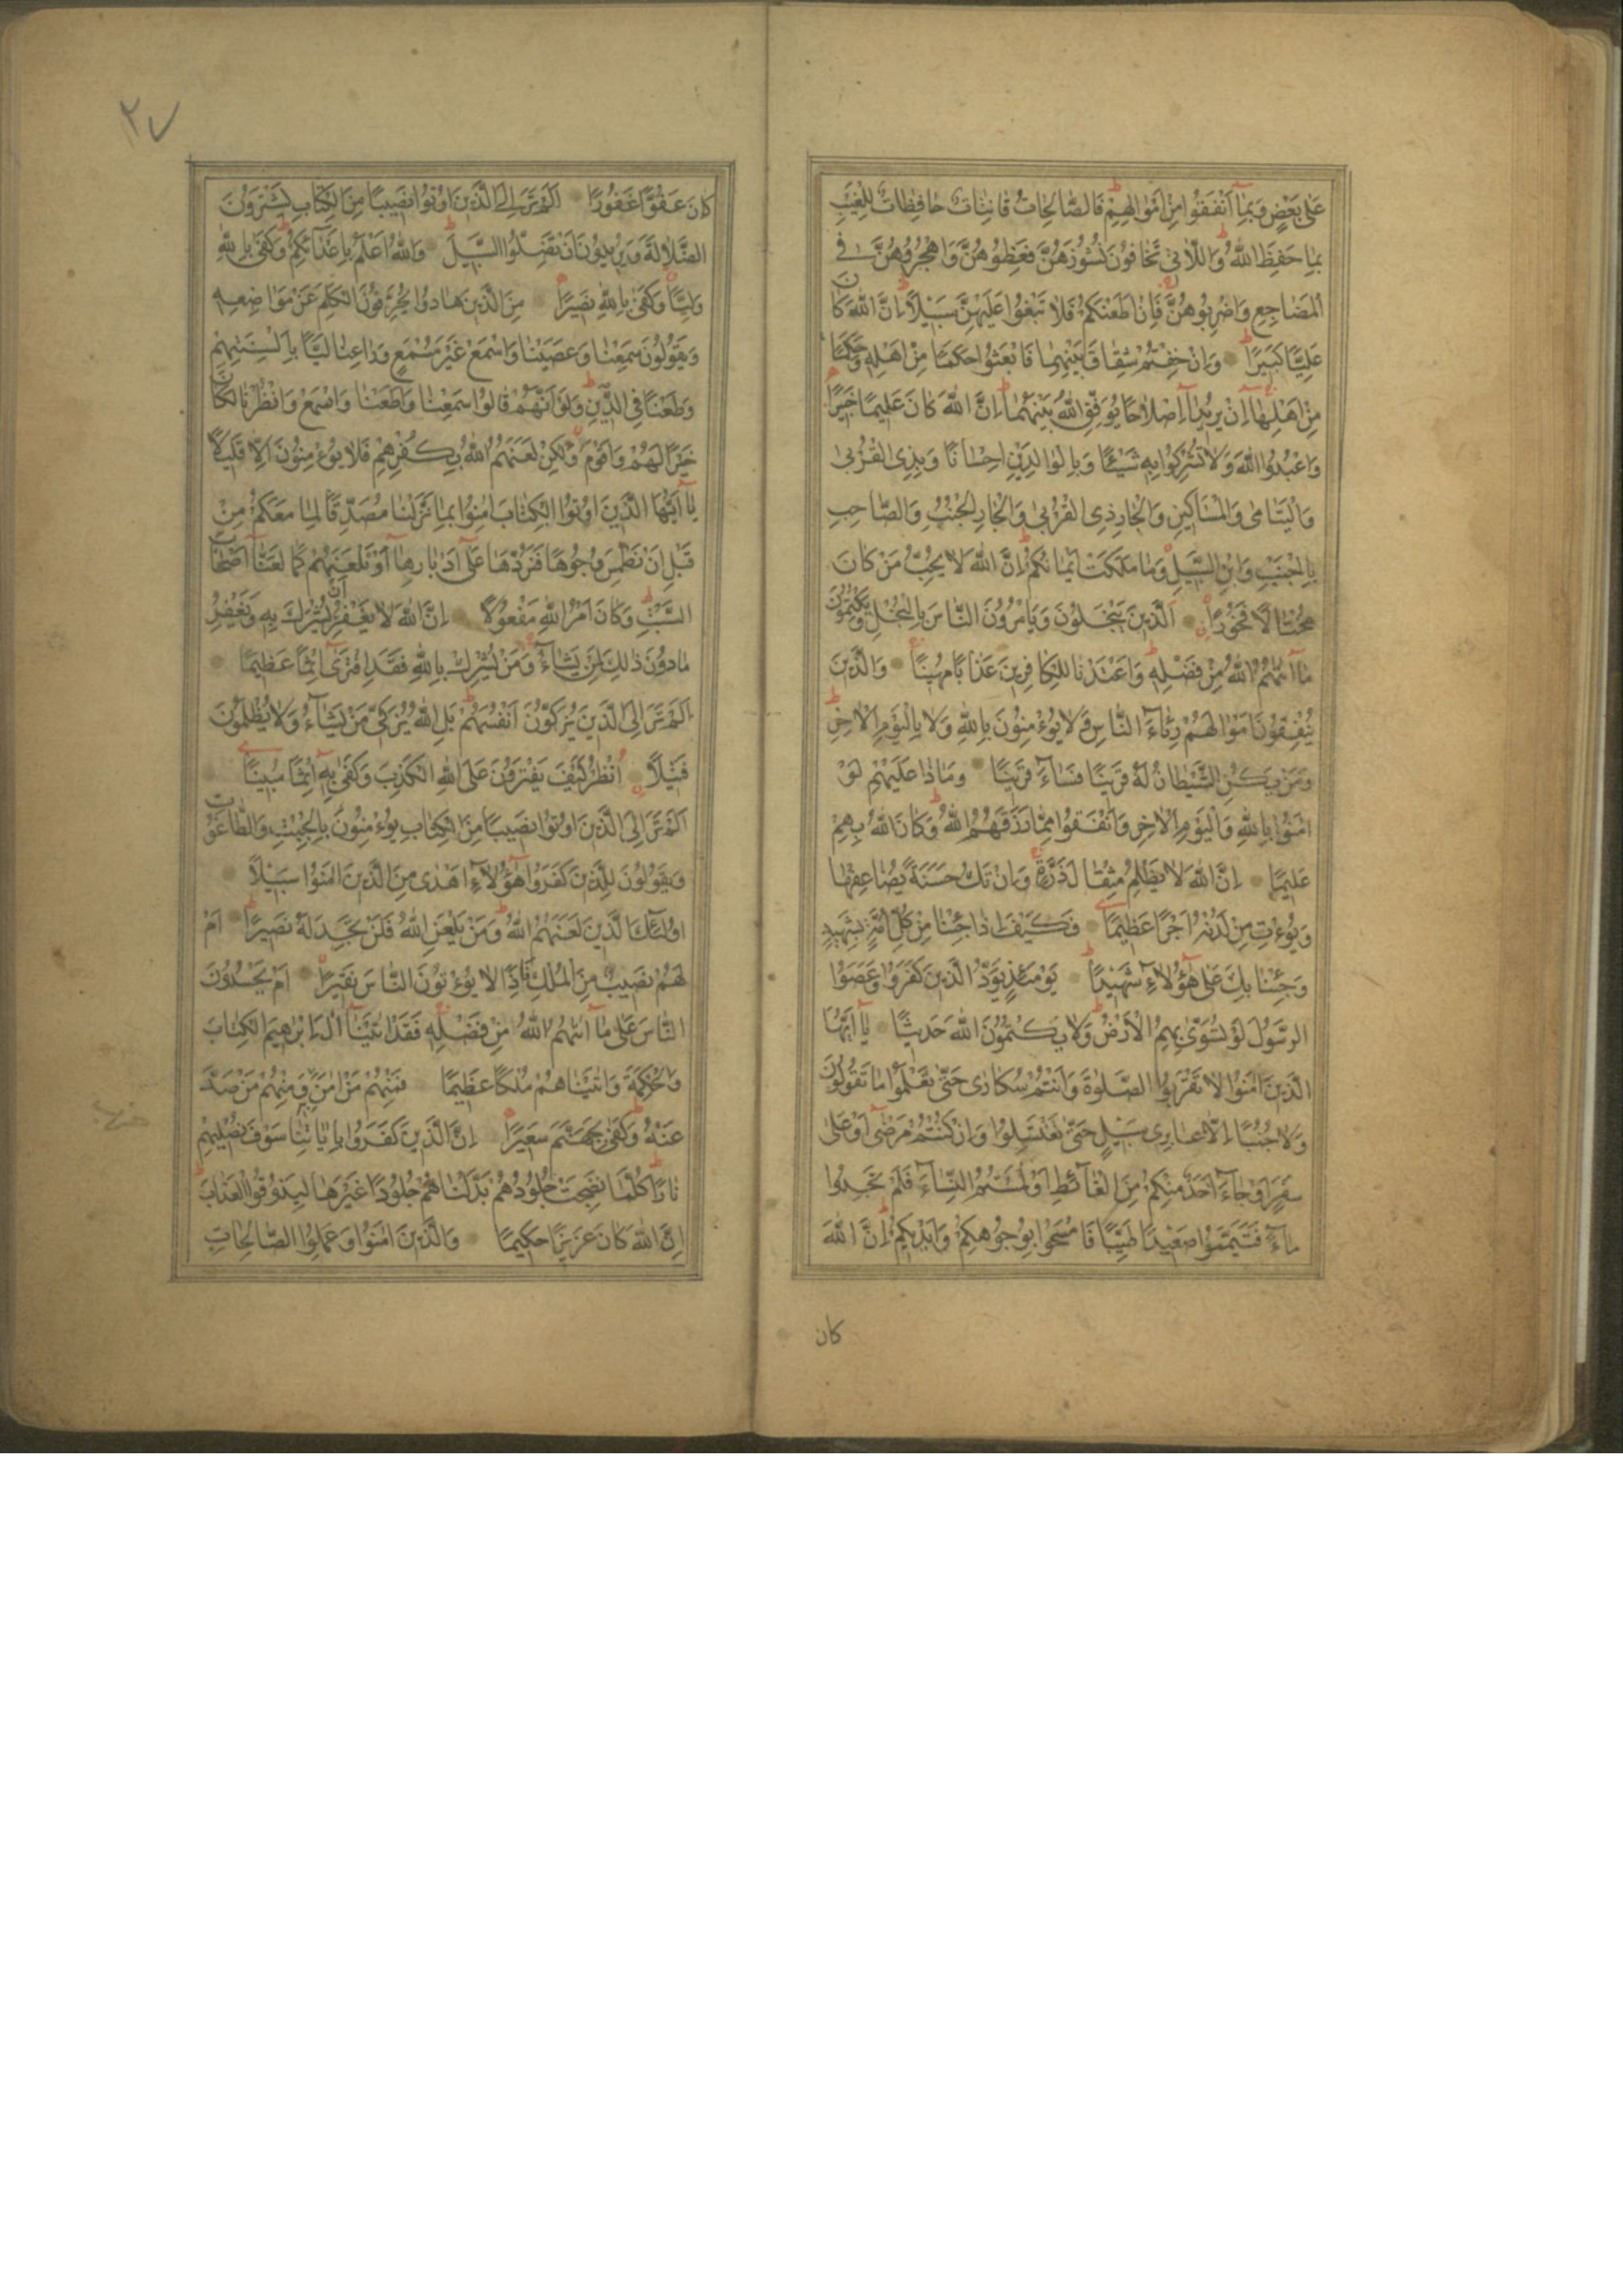 عَلى بَعْضٍ وَبِمآ اَنْفَقُوا مِنْ اَمْوالِهِمْ فَالصّالِحاتُ قانِتاتٌ حافِظاتٌ لِلْغَيْبِ
بِما حَفِظَ اللهُ وَاللّاتي تَخافُونَ نُشُوزَهُنَّ فَعِظُوهُنَّ وَاهْجُرُوهُنَّ فِى
الْمَضاجِعِ وَاضْرِبُوهُنَّ فَاِنْ اَطَعْنَكُمْ فَلا تَبْغُوا عَلَيْهِنَّ سَبيلاً اِنَّ اللهَ كانَ
عَلِيًّا كَبيرًا وَاِنْ خِفْتُمْ شِقاقَ بَيْنِهِما فَابْعَثُوا حَكَمًا مِنْ اَهْلِهِ وَحَكَمًا
مِنْ اَهْلِهآ اِنْ يُريدآ اِصْلاحًا يُوَفِّقِ اللهُ بَيْنَهُمآ اِنَّ اللهَ كانَ عَليمًا خَبيرًا
وَاعْبُدُوا اللهَ وَلا تُشْرِكُوا بِهِ شَيْئًا وَبِالْوالِدَيْنِ اِحْسانًا وَبِذِى الْقُرْبى
وَالْيَتامى وَالْمَساكينِ وَالْجارِ ذِى الْقُرْبى وَالْجارِ الْجُنُبِ وَالصّاحِبِ
بِالْجَنْبِ وَابْنِ السَّبيلِ وَما مَلَكَتْ اَيْمانُكُمْ اِنَّ اللهَ لا يُحِبُّ مَنْ كانَ
مُخْتالاً فَخُورًا اَلَّذينَ يَبْخَلُونَ وَيَأمُرُونَ النّاسَ بِالْبُخْلِ وَيَكْتُمُونَ
مآ اٰتٰيهُمُ اللهُ مِنْ فَضْلِهِ وَاَعْتَدْنا لِلْكافِرينَ عَذابًا مُهينًا وَالَّذينَ
يُنْفِقُونَ اَمْوالَهُمْ رِئآءَ النّاسِ وَلا يُؤْمِنُونَ بِاللهِ وَلا بِالْيَوْمِ الْاٰخِرِ
وَمَنْ يَكُنِ الشَّيْطانُ لَهُ قَرينًا فَسآءَ قَرينًا وَماذا عَلَيْهِمْ لَوْ
اٰمَنُوا بِاللهِ وَالْيَوْمِ الْاٰخِرِ وَاَنْفَقُوا مِمّا رَزَقَهُمُ اللهُ وَكانَ اللهُ بِهِمْ
عَليمًا اِنَّ اللهَ لا يَظْلِمُ مِثْقالَ ذَرَّةٍ وَاِنْ تَكُ حَسَنَةً يُضاعِفْها
وَيُؤْتِ مِنْ لَدُنْهُ اَجْرًا عَظيمًا فَكَيْفَ اِذا جِئْنا مِنْ كُلِّ اُمَّةٍ بِشَهيدٍ
وَجِئْنا بِكَ عَلى هٰٓؤُلآءِ شَهيدًا يَوْمَئِذٍ يَوَدُّ الَّذينَ كَفَرُوا وَعَصَوُا
الرَّسُولَ لَوْ تُسَوّى بِهِمُ الْاَرْضُ وَلا يَكْتُمُونَ اللهَ حَديثًا يآ اَيُّهَا
الَّذينَ اٰمَنُوا لا تَقْرَبُوا الصَّلٰوةَ وَاَنْتُمْ سُكارى حَتّى تَعْلَمُوا ما تَقُولُونَ
وَلا جُنُبًا اِلّا عابِرى سَبيلٍ حَتّى تَغْتَسِلُوا وَاِنْ كُنْتُمْ مَرْضٰى اَوْ عَلى
سَفَرٍ اَوْ جآءَ اَحَدٌ مِنْكُمْ مِنَ الْغآئِطِ اَوْ لٰمَسْتُمُ النِّسآءَ فَلَمْ تَجِدُوا
مآءً فَتَيَمَّمُوا صَعيدًا طَيِّبًا فَامْسَحُوا بِوُجُوهِكُمْ وَاَيْديكُمْ اِنَّ اللهَ
كان
٢٧
كانَ عَفُوًّا غَفُورًا اَلَمْ تَرَ اِلَى الَّذينَ اُوتُوا نَصيبًا مِنَ الْكِتابِ يَشْتَرُونَ
الضَّلالَةَ وَيُريدُونَ اَنْ تَضِلُّوا السَّبيلَ وَاللهُ اَعْلَمُ بِاَعْدآئِكُمْ وَكَفى بِاللهِ
وَلِيًّا وَكَفى بِاللهِ نَصيرًا مِنَ الَّذينَ هادُوا يُحَرِّفُونَ الْكَلِمَ عَنْ مَواضِعِهِ
وَيَقُولُونَ سَمِعْنا وَعَصَيْنا وَاسْمَعْ غَيْرَ مُسْمَعٍ وَراعِنا لَيًّا بِاَلْسِنَتِهِمْ
وَطَعْنًا فِى الدّينِ وَلَوْ اَنَّهُمْ قالُوا سَمِعْنا وَاَطَعْنا وَاسْمَعْ وَانْظُرْنا لَكانَ
خَيْرًا لَهُمْ وَاَقْوَمَ وَلٰكِنْ لَعَنَهُمُ اللهُ بِكُفْرِهِمْ فَلا يُؤْمِنُونَ اِلّا قَليلاً
يآ اَيُّهَا الَّذينَ اُوتُوا الْكِتابَ اٰمِنُوا بِما نَزَّلْنا مُصَدِّقًا لِما مَعَكُمْ مِنْ
قَبْلِ اَنْ نَطْمِسَ وُجُوهًا فَنَرُدَّها عَلٰٓى اَدْبارِهآ اَوْ نَلْعَنَهُمْ كَما لَعَنّآ اَصْحابَ
السَّبْتِ وَكانَ اَمْرُ اللهِ مَفْعُولاً اِنَّ اللهَ لا يَغْفِرُ اَنْ يُشْرَكَ بِهِ وَيَغْفِرُ
ما دُونَ ذٰلِكَ لِمَنْ يَشآءُ وَمَنْ يُشْرِكْ بِاللهِ فَقَدِ افْتَرٰٓى اِثْمًا عَظيمًا
اَلَمْ تَرَ اِلَى الَّذينَ يُزَكُّونَ اَنْفُسَهُمْ بَلِ اللهُ يُزَكّى مَنْ يَشآءُ وَلا يُظْلَمُونَ
فَتيلاً اُنْظُرْ كَيْفَ يَفْتَرُونَ عَلَى اللهِ الْكَذِبَ وَكَفى بِهِ اِثْمًا مُبينًا
اَلَمْ تَرَ اِلَى الَّذينَ اُوتُوا نَصيبًا مِنَ الْكِتابِ يُؤْمِنُونَ بِالْجِبْتِ وَالطّاغُوتِ
وَيَقُولُونَ لِلَّذينَ كَفَرُوا هٰٓؤُلآءِ اَهْدى مِنَ الَّذينَ اٰمَنُوا سَبيلاً
اُولٰٓئِكَ الَّذينَ لَعَنَهُمُ اللهُ وَمَنْ يَلْعَنِ اللهُ فَلَنْ تَجِدَ لَهُ نَصيرًا اَمْ
لَهُمْ نَصيبٌ مِنَ الْمُلْكِ فَاِذًا لا يُؤْتُونَ النّاسَ نَقيرًا اَمْ يَحْسُدُونَ
النّاسَ عَلى مآ اٰتٰيهُمُ اللهُ مِنْ فَضْلِهِ فَقَدْ اٰتَيْنآ اٰلَ اِبْرٰهيمَ الْكِتابَ
وَالْحِكْمَةَ وَاٰتَيْناهُمْ مُلْكًا عَظيمًا فَمِنْهُمْ مَنْ اٰمَنَ بِهِ وَمِنْهُمْ مَنْ صَدَّ
عَنْهُ وَكَفى بِجَهَنَّمَ سَعيرًا اِنَّ الَّذينَ كَفَرُوا بِاٰياتِنا سَوْفَ نُصْليهِمْ
نارًا كُلَّما نَضِجَتْ جُلُودُهُمْ بَدَّلْناهُمْ جُلُودًا غَيْرَها لِيَذُوقُوا الْعَذابَ
اِنَّ اللهَ كانَ عَزيزًا حَكيمًا وَالَّذينَ اٰمَنُوا وَعَمِلُوا الصّالِحاتِ